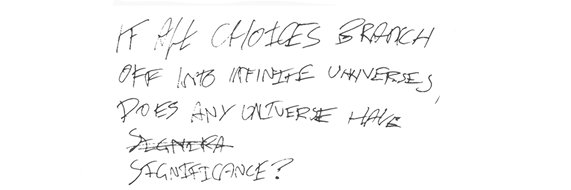 IF ALL CHOICES BRANCH
OFF INTO INFINITE UNIVERSES,
DOES ANY UNIVERSE HAVE
SIGNIKA
SIGNIFICANCE?